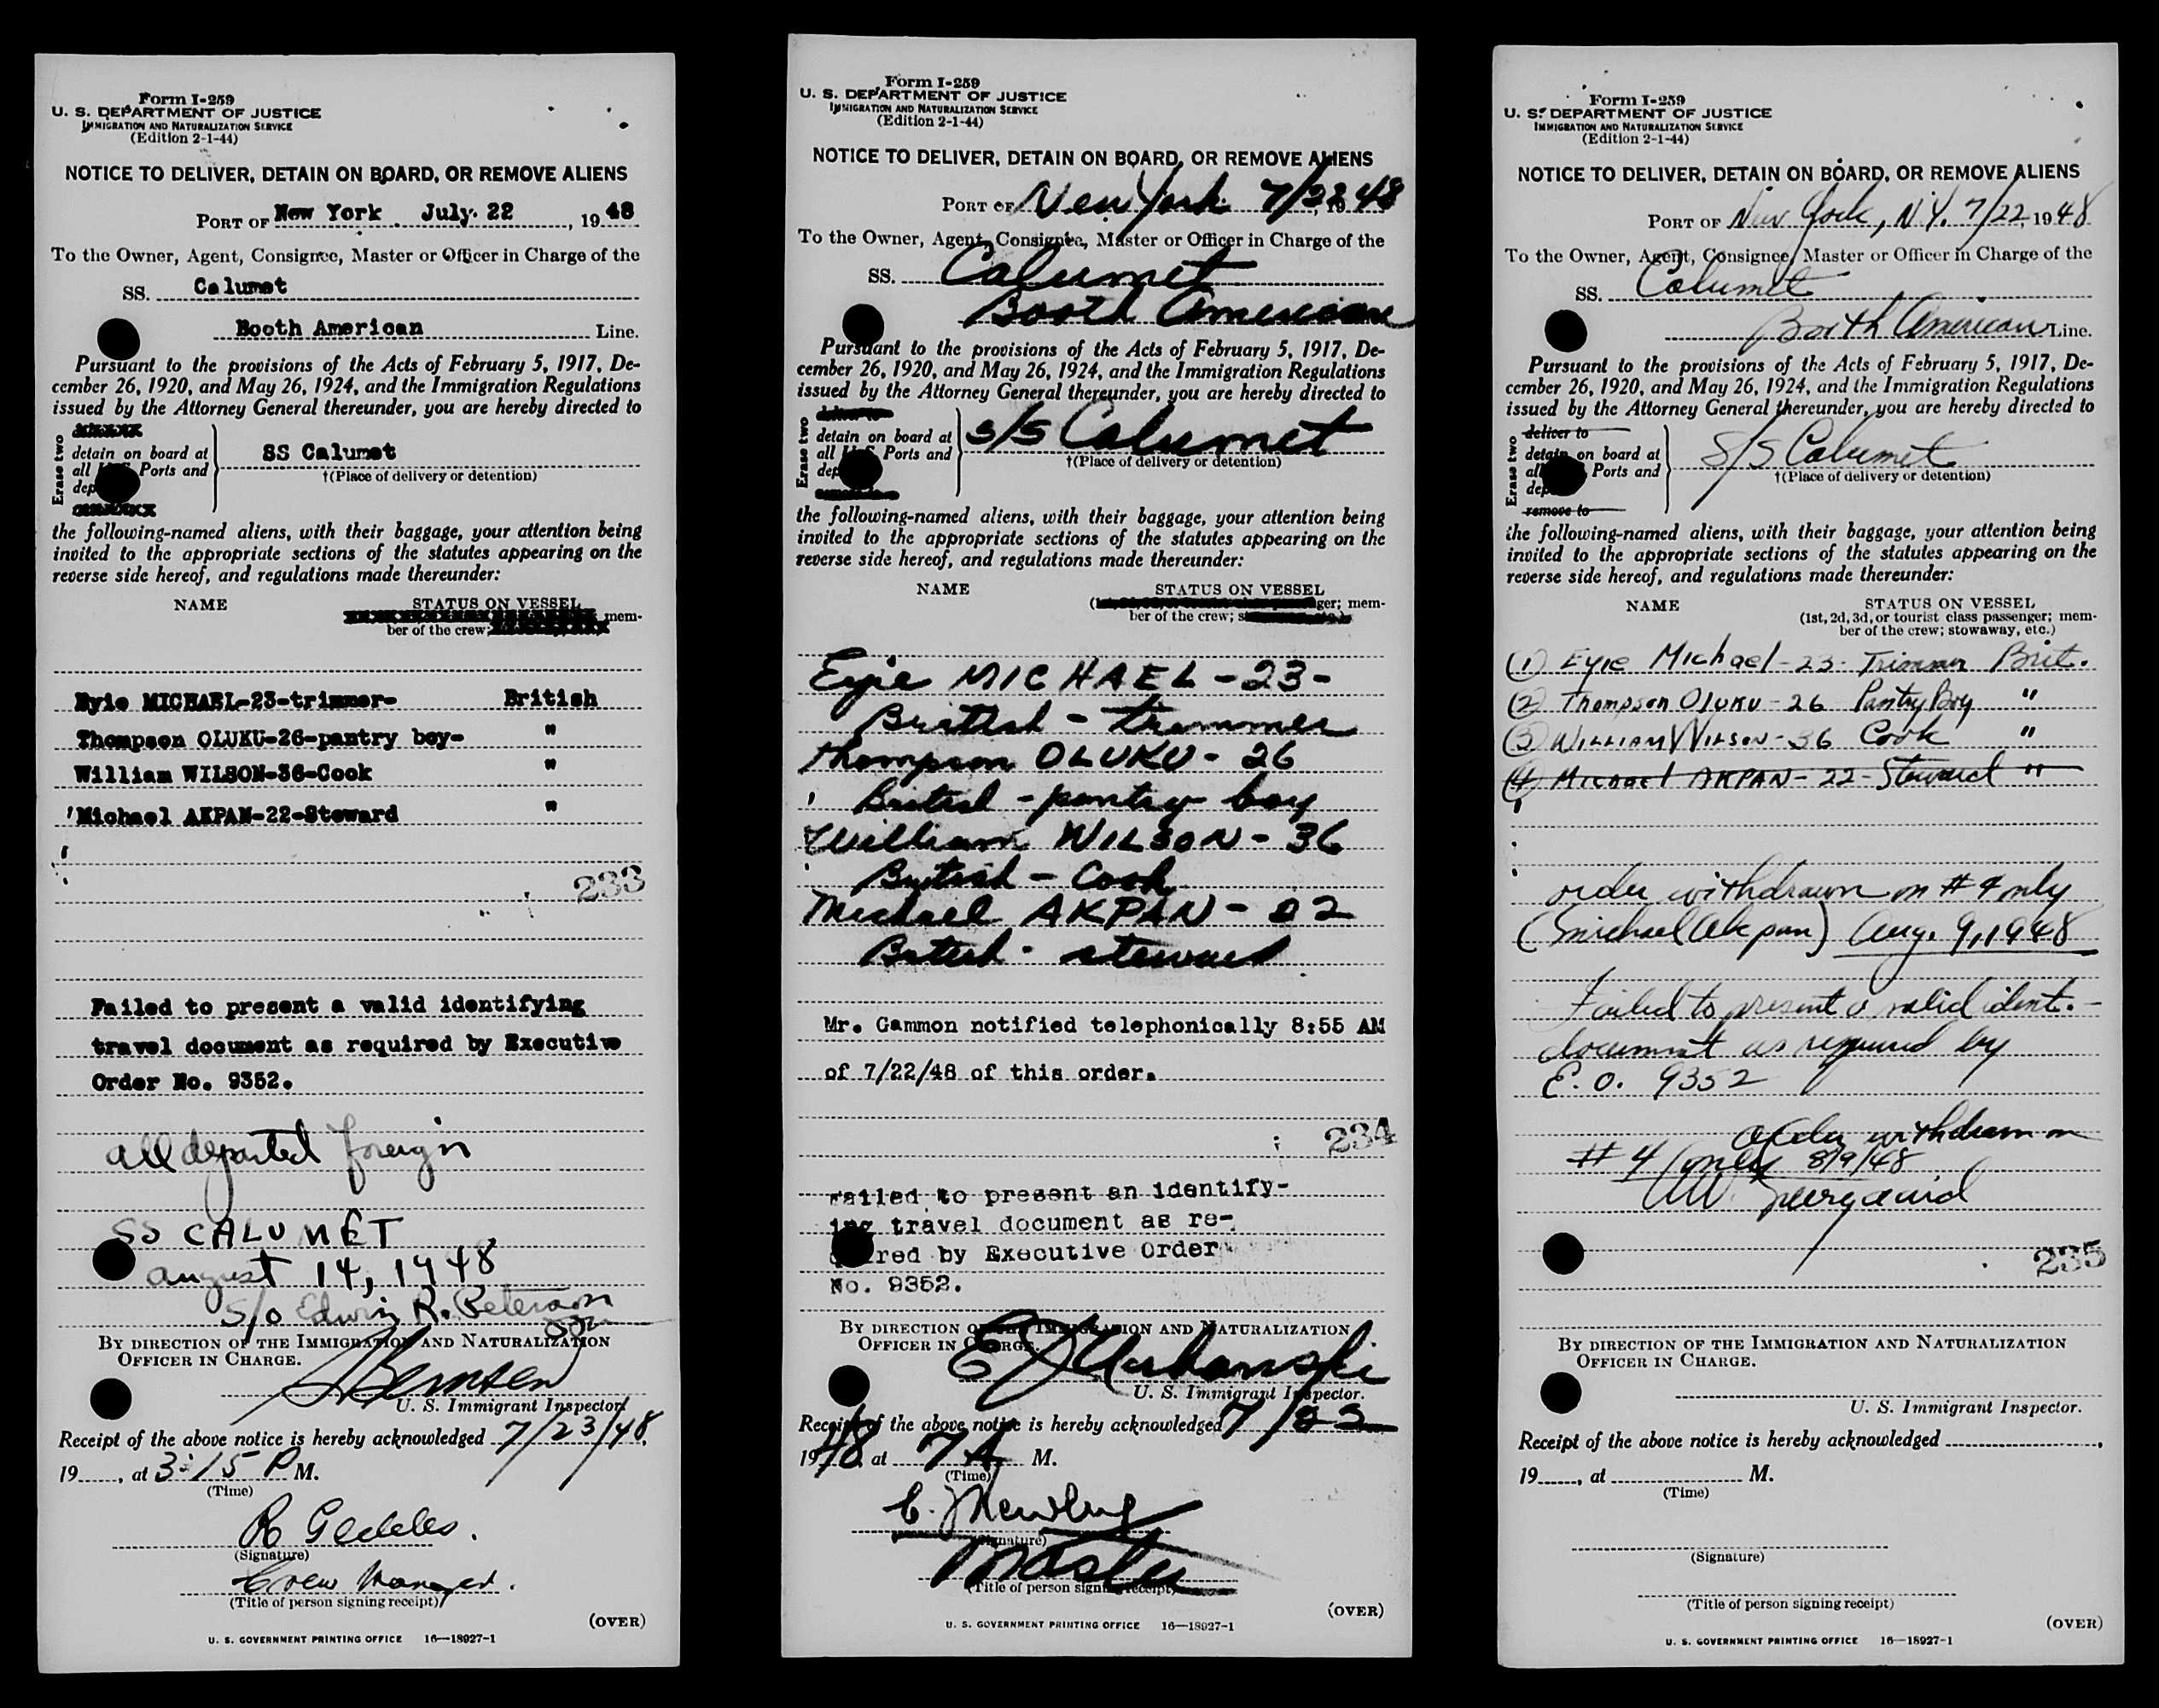 Form I-259
U. S. DEPARTMENT OF JUSTICE
IMMIGRATION AND NATURALIZATION SERVICE
(Edition 2-1-44)
NOTICE TO DELIVER, DETAIN ON BOARD, OR REMOVE ALIENS
PORT OF New York July 22, 1948
To the Owner, Agent, Consignee, Master or Officer in Charge of the
SS. Calumet
Booth American Line.
Pursuant to the provisions of the Acts of February 5, 1917, De-
cember 26, 1920, and May 26, 1924, and the Immigration Regulations
issued by the Attorney General thereunder, you are hereby directed to
Erase two
detain on board at
all Ports and
dep
SS Calumet
†(Place of delivery or detention)
the following-named aliens, with their baggage, your attention being
invited to the appropriate sections of the statutes appearing on the
reverse side hereof, and regulations made thereunder:
NAME STATUS ON VESSEL
mem-
ber of the crew;
Eyie MICHAEL-23-trimmer- British
Thompson OLUKU-26-pantry boy- "
William WILSON-36-Cook "
Michael AKPAN-22-Steward "
233
Failed to present a valid identifying
travel document as required by Executive
Order No. 9352.
all departed foreign
SS CALUMET
august 14, 1948
S/o Edwin R. Peterson
BY DIRECTION OF THE IMMIGRATION AND NATURALIZATION
OFFICER IN CHARGE.
U. S. Immigrant Inspector.
Receipt of the above notice is hereby acknowledged 7/23/48,
19, at 3:15 P M.
(Time)
R Geddes.
(Signature)
Crew Manager.
(Title of person signing receipt)
(OVER)
U. S. GOVERNMENT PRINTING OFFICE 16—18927-1
Form I-259
U. S. DEPARTMENT OF JUSTICE
IMMIGRATION AND NATURALIZATION SERVICE
(Edition 2-1-44)
NOTICE TO DELIVER, DETAIN ON BOARD, OR REMOVE ALIENS
PORT OF New York 7/22 48
To the Owner, Agent, Consignee, Master or Officer in Charge of the
SS. Calumet
Booth American
Pursuant to the provisions of the Acts of February 5, 1917, De-
cember 26, 1920, and May 26, 1924, and the Immigration Regulations
issued by the Attorney General thereunder, you are hereby directed to
Erase two
deliver to
detain on board at
all U.S. Ports and
dep
remove to
s/s Calumet
†(Place of delivery or detention)
the following-named aliens, with their baggage, your attention being
invited to the appropriate sections of the statutes appearing on the
reverse side hereof, and regulations made thereunder:
NAME STATUS ON VESSEL
ger; mem-
ber of the crew;
Eyie MICHAEL - 23 -
British - trimmer
Thompson OLUKU - 26
British - pantry boy
William WILSON - 36
British - Cook
Michael AKPAN - 22
British - steward
Mr. Gammon notified telephonically 8:55 AM
of 7/22/48 of this order.
234
Failed to present an identify-
ing travel document as re-
quired by Executive Order
No. 9352.
BY DIRECTION OF THE IMMIGRATION AND NATURALIZATION
OFFICER IN CHARGE.
E J Urbanski
U. S. Immigrant Inspector.
Receipt of the above notice is hereby acknowledged 7/23
1948, at 7 A M.
(Time)
(Signature)
Master
(Title of person signing receipt)
(OVER)
U. S. GOVERNMENT PRINTING OFFICE 16—18927-1
Form I-259
U. S. DEPARTMENT OF JUSTICE
IMMIGRATION AND NATURALIZATION SERVICE
(Edition 2-1-44)
NOTICE TO DELIVER, DETAIN ON BOARD, OR REMOVE ALIENS
PORT OF New York, N.Y. 7/22, 1948
To the Owner, Agent, Consignee, Master or Officer in Charge of the
SS. Calumet
Booth American Line.
Pursuant to the provisions of the Acts of February 5, 1917, De-
cember 26, 1920, and May 26, 1924, and the Immigration Regulations
issued by the Attorney General thereunder, you are hereby directed to
Erase two
deliver to
detain on board at
all Ports and
dep
remove to
S/S Calumet
†(Place of delivery or detention)
the following-named aliens, with their baggage, your attention being
invited to the appropriate sections of the statutes appearing on the
reverse side hereof, and regulations made thereunder:
NAME STATUS ON VESSEL
(1st, 2d, 3d, or tourist class passenger; mem-
ber of the crew; stowaway, etc.)
(1) Eyie Michael - 23 - Trimmer Brit.
(2) Thompson Oluku - 26 Pantry Boy "
(3) WILLIAM WILSON - 36 Cook "
(4) Michael AKPAN - 22 - Steward "
order withdrawn on #4 only
(Michael Akpan) Aug. 9, 1948
Failed to present a valid ident.-
document as required by
E.O. 9352
Order withdrawn on
#4 only 8/9/48
235
BY DIRECTION OF THE IMMIGRATION AND NATURALIZATION
OFFICER IN CHARGE.
U. S. Immigrant Inspector.
Receipt of the above notice is hereby acknowledged ,
19, at M.
(Time)
(Signature)
(Title of person signing receipt)
(OVER)
U. S. GOVERNMENT PRINTING OFFICE 16—18927-1